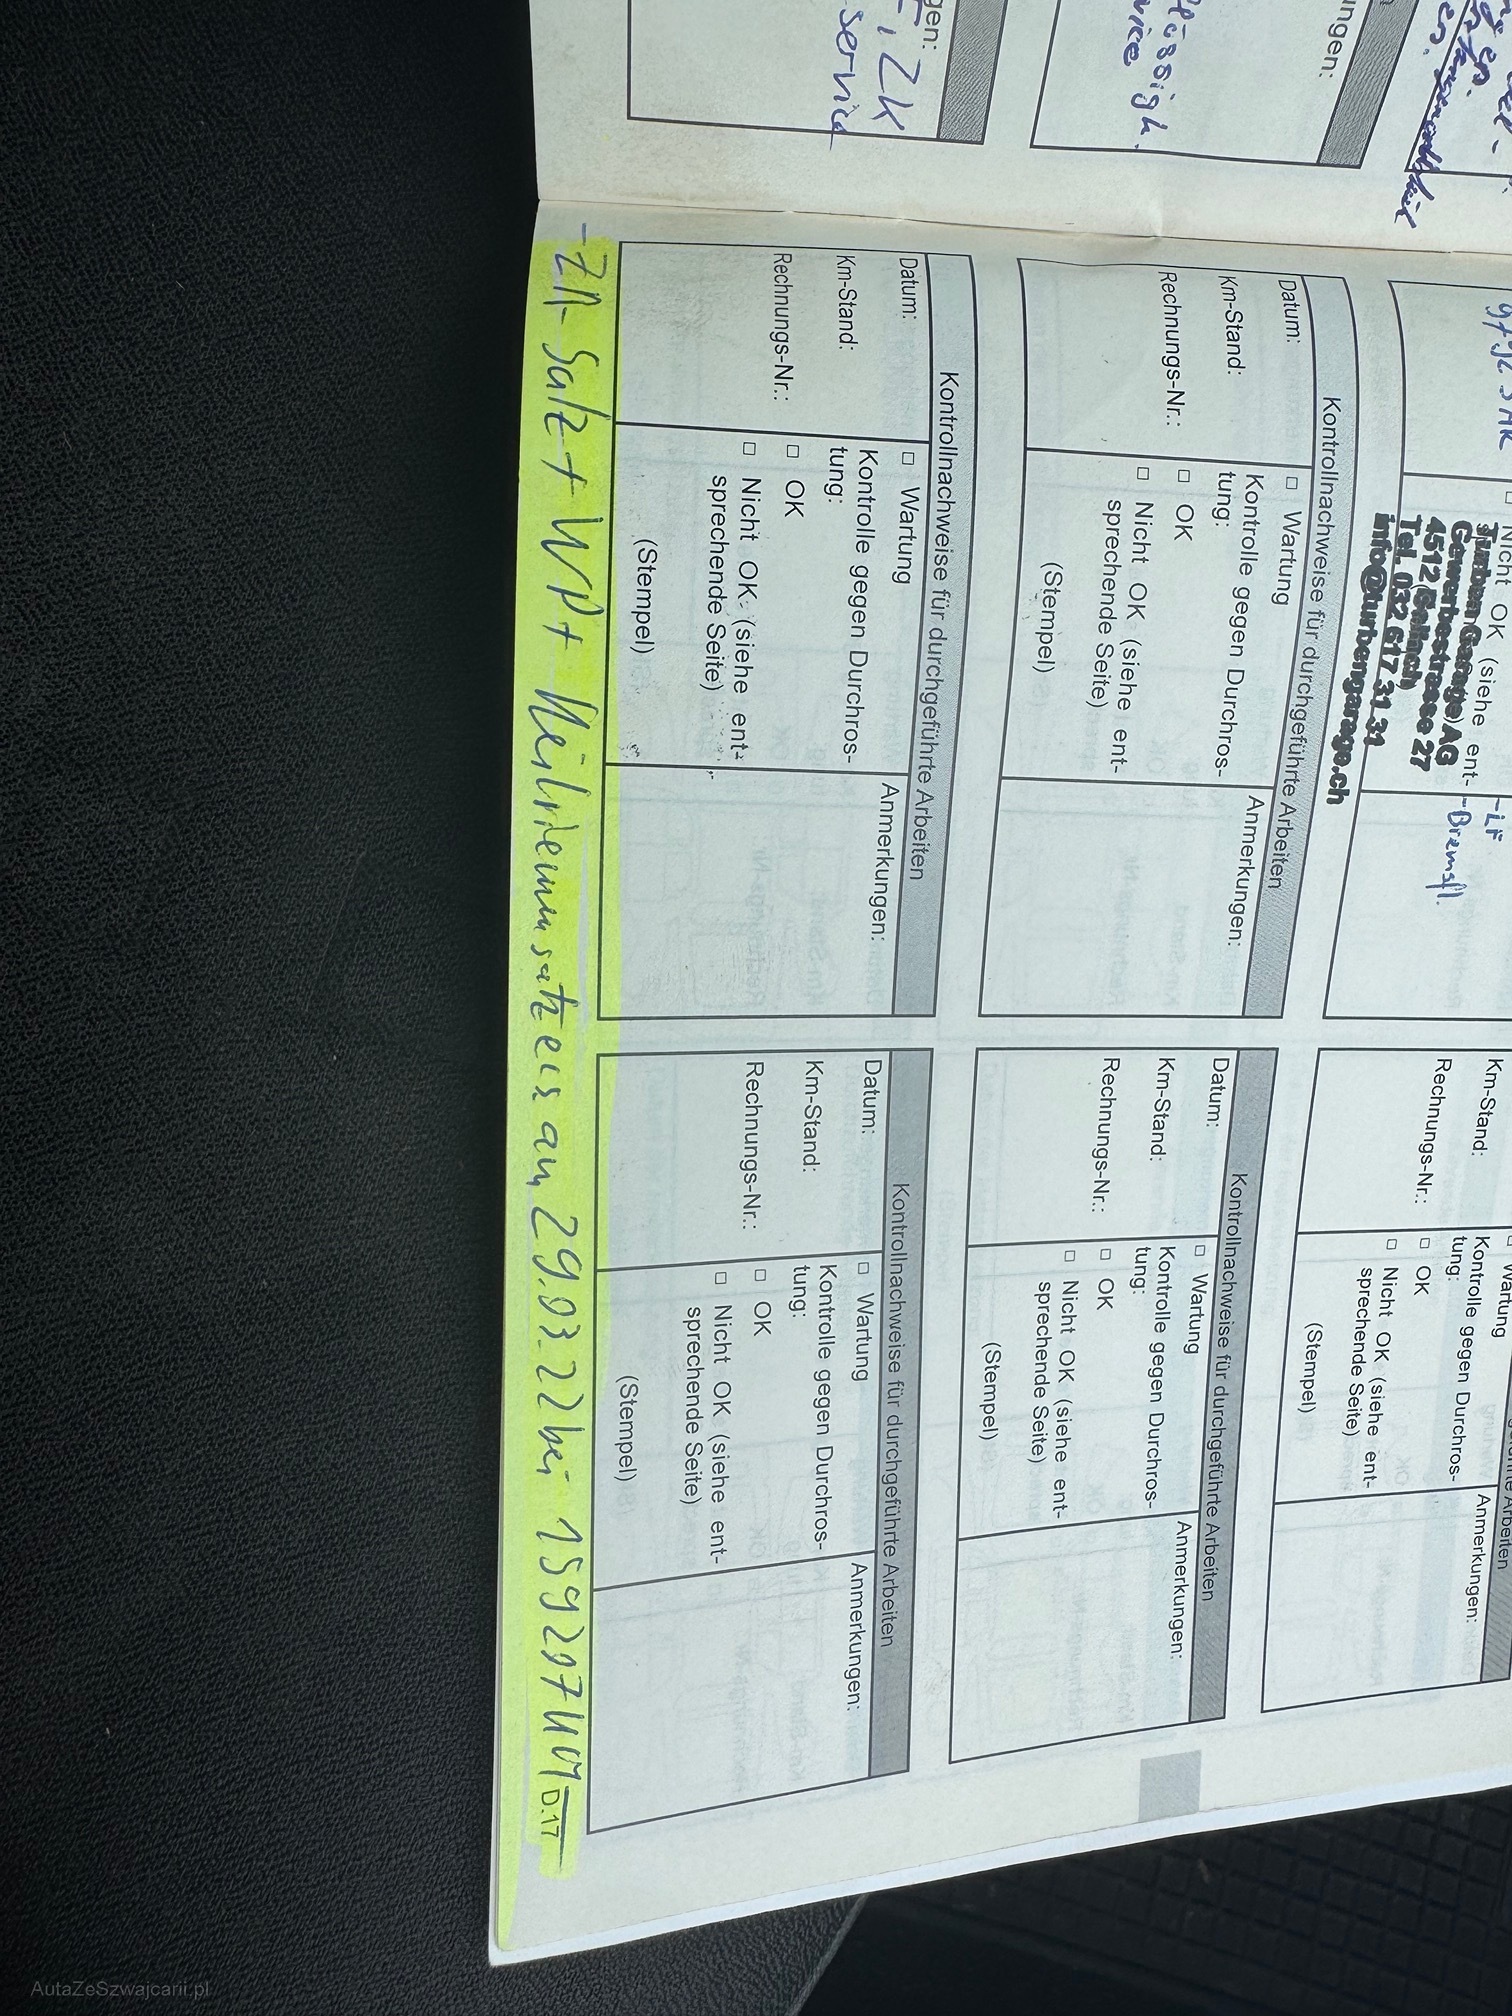 gen:
ZK
service
ungen:
Kontrollnachweise für durchgeführte Arbeiten
Datum:
Km-Stand:
Rechnungs-Nr.:
□ Wartung
Kontrolle gegen Durchros-
tung:
□ OK
□ Nicht OK (siehe ent-
sprechende Seite)
(Stempel)
Anmerkungen:
Kontrollnachweise für durchgeführte Arbeiten
Datum:
Km-Stand:
Rechnungs-Nr.:
□ Wartung
Kontrolle gegen Durchros-
tung:
□ OK
□ Nicht OK (siehe ent-
sprechende Seite)
(Stempel)
Anmerkungen:
Nicht OK (siehe ent-
Turben Garage AG
Gewerbestrasse 27
4512 Bellach
Tel. 032 617 31 31
info@turbengarage.ch
- Bremsfl.
Km-Stand:
Rechnungs-Nr.:
Wartung
Kontrolle gegen Durchros-
tung:
□ OK
□ Nicht OK (siehe ent-
sprechende Seite)
(Stempel)
Arbeiten
Anmerkungen:
Kontrollnachweise für durchgeführte Arbeiten
Datum:
Km-Stand:
Rechnungs-Nr.:
□ Wartung
Kontrolle gegen Durchros-
tung:
□ OK
□ Nicht OK (siehe ent-
sprechende Seite)
(Stempel)
Anmerkungen:
Kontrollnachweise für durchgeführte Arbeiten
Datum:
Km-Stand:
Rechnungs-Nr.:
□ Wartung
Kontrolle gegen Durchros-
tung:
□ OK
□ Nicht OK (siehe ent-
sprechende Seite)
(Stempel)
Anmerkungen:
- ZR-Satz + WP + Keilriemensatz ers am 29.03.22 bei 159207 KM
D.17
AutaZeSzwajcarii.pl